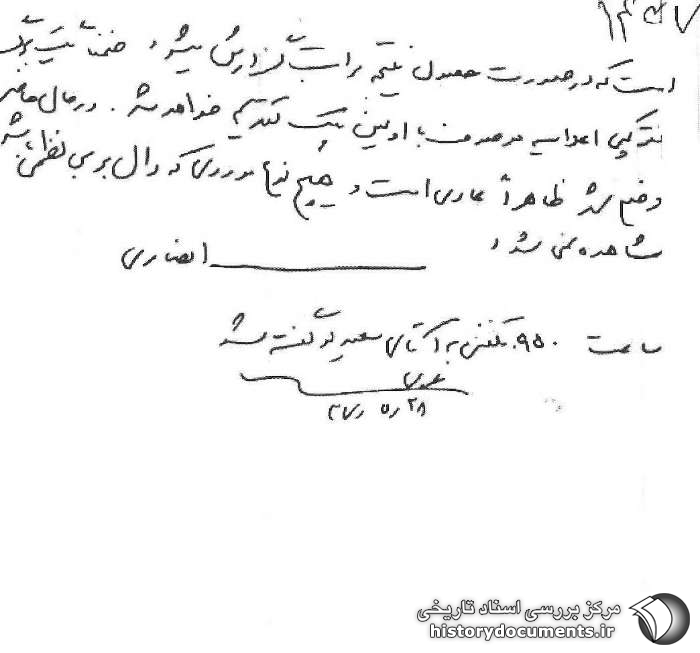 ۱۴۵۷
است که در صورت حصول نتیجه مراتب گزارش میشود ضمناً یک برگ
تراکت اعلامیه با اولین پیک تقدیم خواهد شد. در حال حاضر
وضع شهر ظاهراً عادی است و هیچ نوع موردی که دال بر بی‌نظمی باشد
مشاهده نمی‌شود
انصاری
ساعت ۹۵۰ تلفنی به آقای گفته شد
۲۸ ر۵ ر
مرکز بررسی اسناد تاریخی
historydocuments.ir